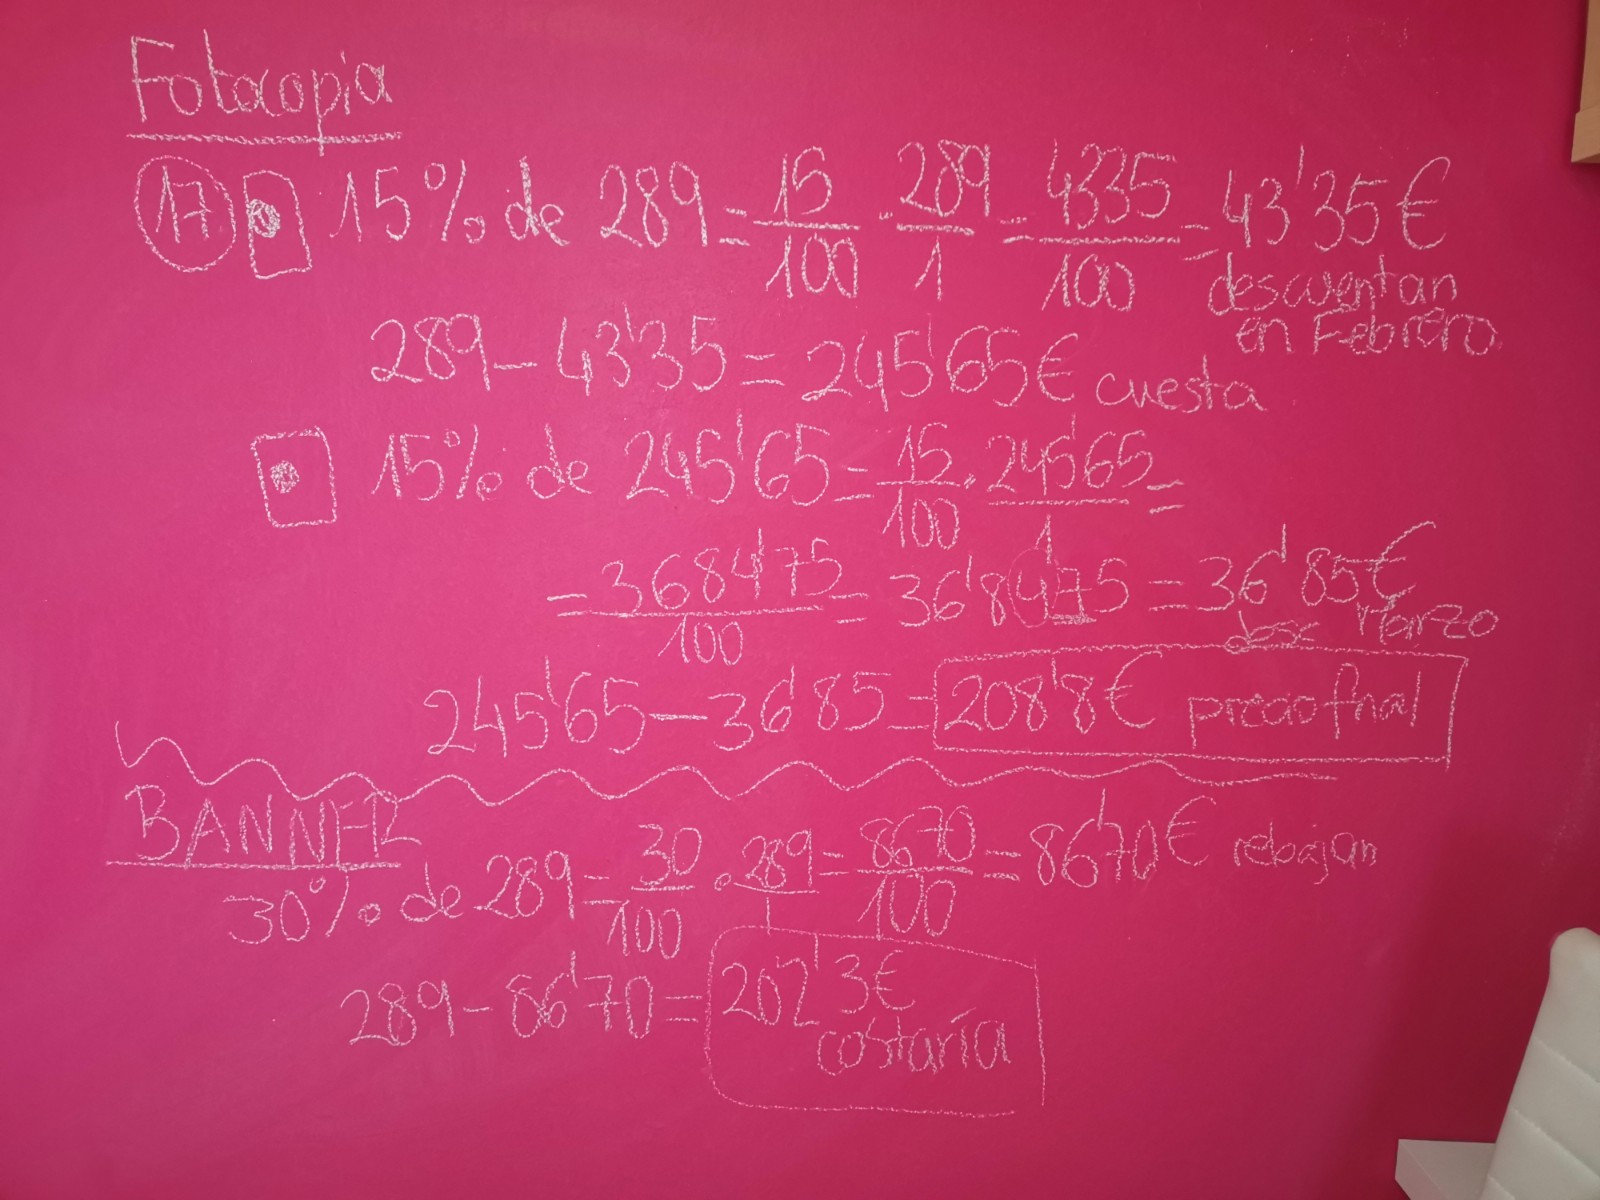 Fotocopia
17 • 15% de 289 = 15/100 · 289/1 = 4335/100 = 43'35€
descuentan
en Febrero
289 - 43'35 = 245'65€ cuesta
• 15% de 245'65 = 15/100 · 245'65/1 =
= 3684'75/100 = 36'8475 = 36'85€
desc Marzo
245'65 - 36'85 = 208'8€ precio final
BANNER
30% de 289 = 30/100 · 289/1 = 8670/100 = 86'70€ rebajan
289 - 86'70 = 202'3€
costaría